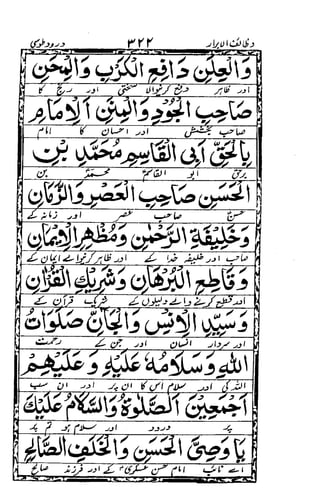 وظائف الابرار ۳۲۲ درود طوسی
وَالْعِلَنِ دَافِعِ الْكَرْبِ وَالْمِحَنِ
اور ظاہر دفع کرنیوالا سختی اور رنج کا
صَاحِبِ الْجُودِ وَالْمِنَنِ اَلْاِمَامِ
صاحب بخشش اور احسان کا امام
بِالْحَقِّ اَبِى الْقَاسِمِ مُحَمَّدِ بْنِ
برحق ابو القاسم محمد بن
الْحَسَنِ صَاحِبِ الْعَصْرِ وَالزَّمَانِ
حسن صاحب عصر اور زمانہ کے
وَخَلِيْفَةِ الرَّحْمٰنِ وَمُظْهِرِ الْاِيْمَانِ
صاحب اور خلیفہ خدا کے اور ظاہر کرنیوالے ایمان کے
وَقَاطِعِ الْبُرْهَانِ وَشَرِيْكِ الْقُرْاٰنِ
اور قطع کرنے والے دلیلوں کے شریک قرآن کے
وَسَيِّدِ الْاِنْسِ وَالْجَانِّ صَلَوَاتُ
اور سردار انسان اور جن کے رحمت
اللهِ وَسَلَامُهٗ عَلَيْهِ وَعَلَيْهِمْ
اللہ کی اور سلام اس کا ان پر اور ان سب
اَجْمَعِيْنَ اَلصَّلٰوةُ وَالسَّلَامُ عَلَيْكَ
پر درود اور سلام ہو تم پر
يَا وَصِىَّ الْحَسَنِ وَالْخَلَفِ الصَّالِحِ
اے نائب امام حسن عسکری کے اور فرزند صالح